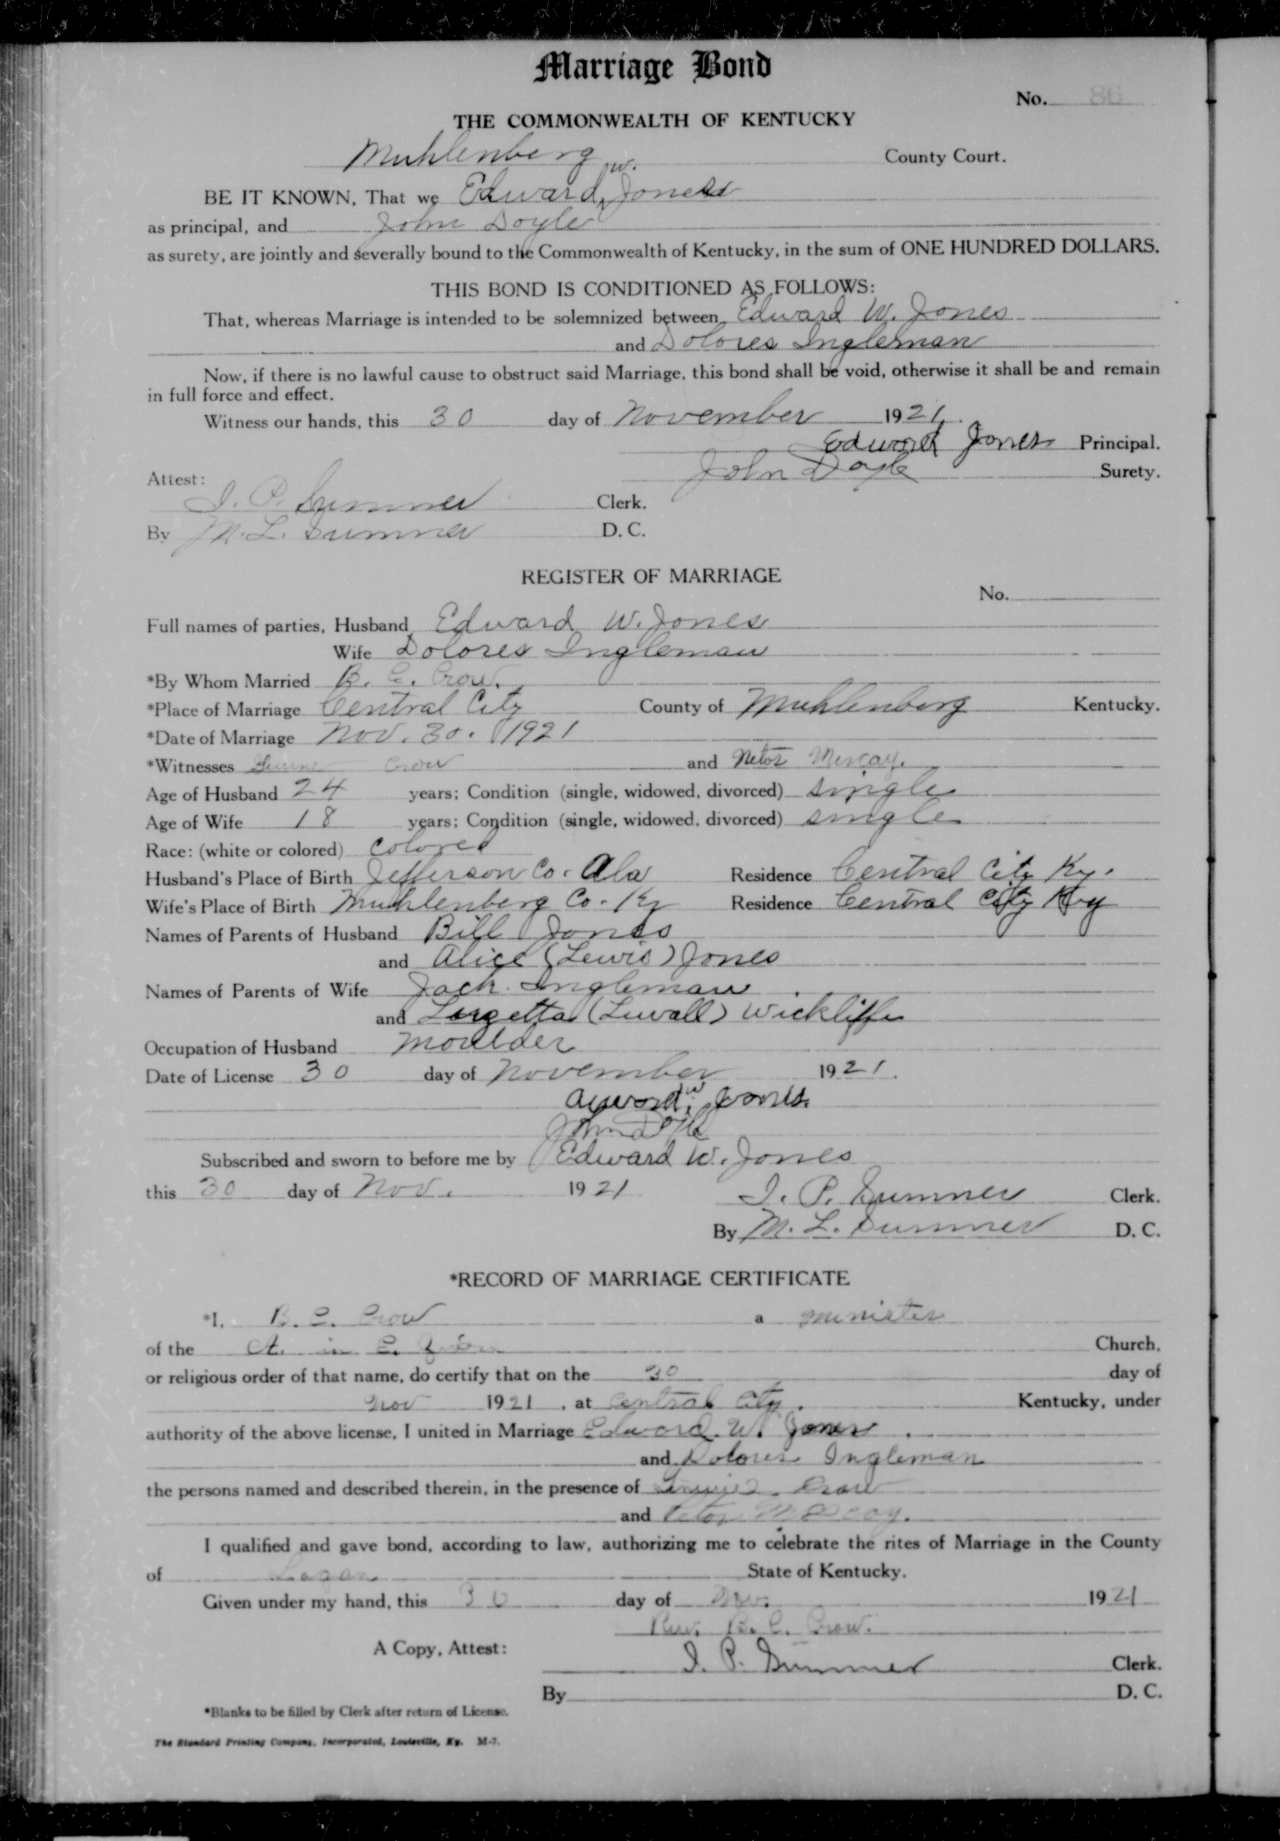 Marriage Bond
No. 86
THE COMMONWEALTH OF KENTUCKY
Muhlenberg County Court.
BE IT KNOWN, That we Edward W. Jones
as principal, and John Doyle
as surety, are jointly and severally bound to the Commonwealth of Kentucky, in the sum of ONE HUNDRED DOLLARS.
THIS BOND IS CONDITIONED AS FOLLOWS:
That, whereas Marriage is intended to be solemnized between Edward W. Jones
and Dolores Ingleman
Now, if there is no lawful cause to obstruct said Marriage, this bond shall be void, otherwise it shall be and remain
in full force and effect.
Witness our hands, this 30 day of November 1921.
Edward Jones Principal.
John Doyle Surety.
Attest:
I. P. Summer Clerk.
By M. L. Summer D. C.
REGISTER OF MARRIAGE
No.
Full names of parties, Husband Edward W. Jones
Wife Dolores Ingleman
*By Whom Married B. C. Crow.
*Place of Marriage Central City County of Muhlenberg Kentucky.
*Date of Marriage Nov. 30. 1921
*Witnesses Crow and
Age of Husband 24 years; Condition (single, widowed, divorced) single
Age of Wife 18 years; Condition (single, widowed, divorced) single
Race: (white or colored) colored
Husband's Place of Birth Jefferson Co. Ala Residence Central City Ky.
Wife's Place of Birth Muhlenberg Co. Ky Residence Central City Ky
Names of Parents of Husband Bill Jones
and Alice (Lewis) Jones
Names of Parents of Wife Jack Ingleman
and (Luvall) Wickliffe
Occupation of Husband Moulder
Date of License 30 day of November 1921.
W. Jones
John Doyle
Subscribed and sworn to before me by Edward W. Jones
this 30 day of Nov. 1921
I. P. Summer Clerk.
By M. L. Summer D. C.
*RECORD OF MARRIAGE CERTIFICATE
*I, B. C. Crow a minister
of the Church,
or religious order of that name, do certify that on the 30 day of
Nov 1921, at Central City. Kentucky, under
authority of the above license, I united in Marriage Edward. W. Jones.
and Dolores Ingleman
the persons named and described therein, in the presence of Crow
and
I qualified and gave bond, according to law, authorizing me to celebrate the rites of Marriage in the County
of Logan State of Kentucky.
Given under my hand, this 30 day of Nov. 1921
Rev. B. C. Crow.
A Copy, Attest:
I. P. Summer Clerk.
By D. C.
*Blanks to be filled by Clerk after return of License.
The Standard Printing Company, Incorporated, Louisville, Ky. M-7.